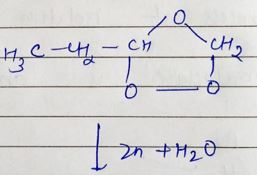 O
H3C-CH2-CH CH2
O — O
Zn + H2O